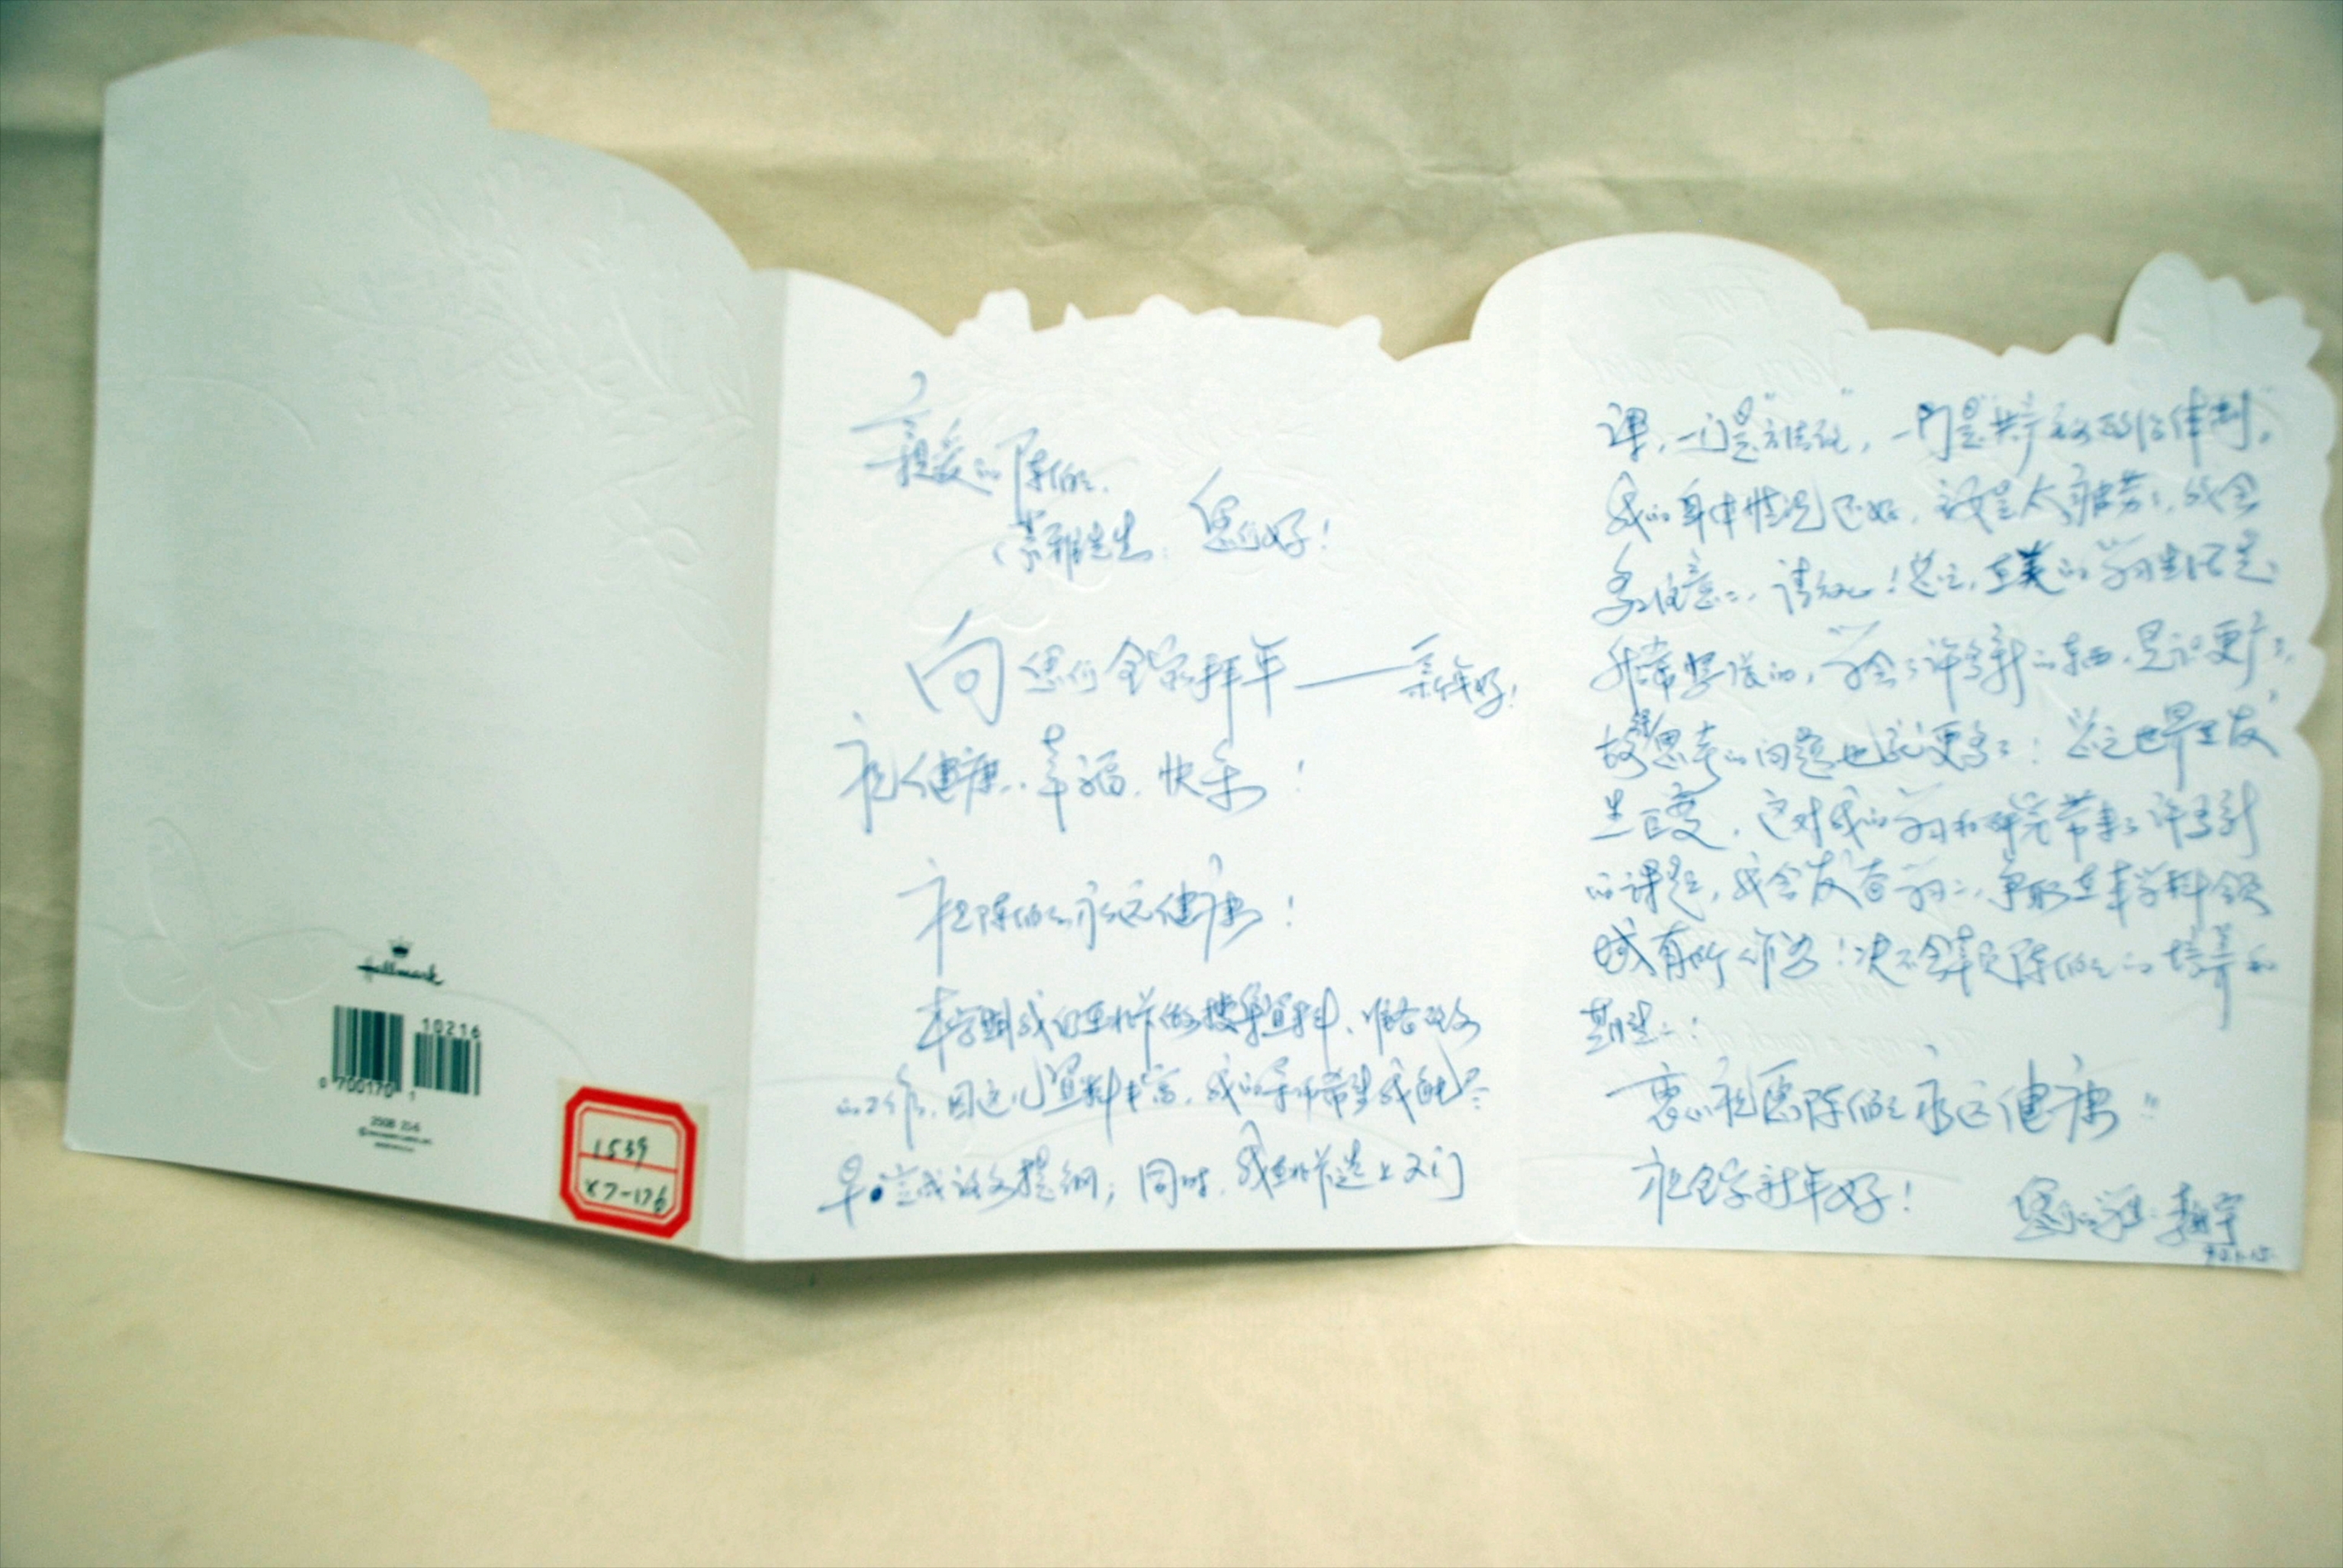 Hallmark
10216
0 700170 1
1539
X7-176
亲爱的陈伯伯
您们好!
向您们全家拜年——新年好!
祝健康、幸福、快乐!
祝陈伯伯永远健康!
本学期我们主要作的搜集资料、准备论文
的工作,因这儿资料丰富,我的导师希望我能尽
早完成论文提纲;同时,我还选上了两门
课,一门是"方法论",一门是"共产主义政治体制"。
我的身体情况还好,就是太疲劳了,我会
多注意的,请放心!总之,在美的学习生活是
非常紧张的,学会了许多新的东西,见识更广了,
故思考的问题也就更多了!总之世界在发
生巨变,这对我的学习和研究带来了许多新
的课题,我会发奋学习,争取在本学科领
域有所作为!决不会辜负陈伯伯的培养和
期望!
衷心祝愿陈伯伯永远健康!!
祝全家新年好!